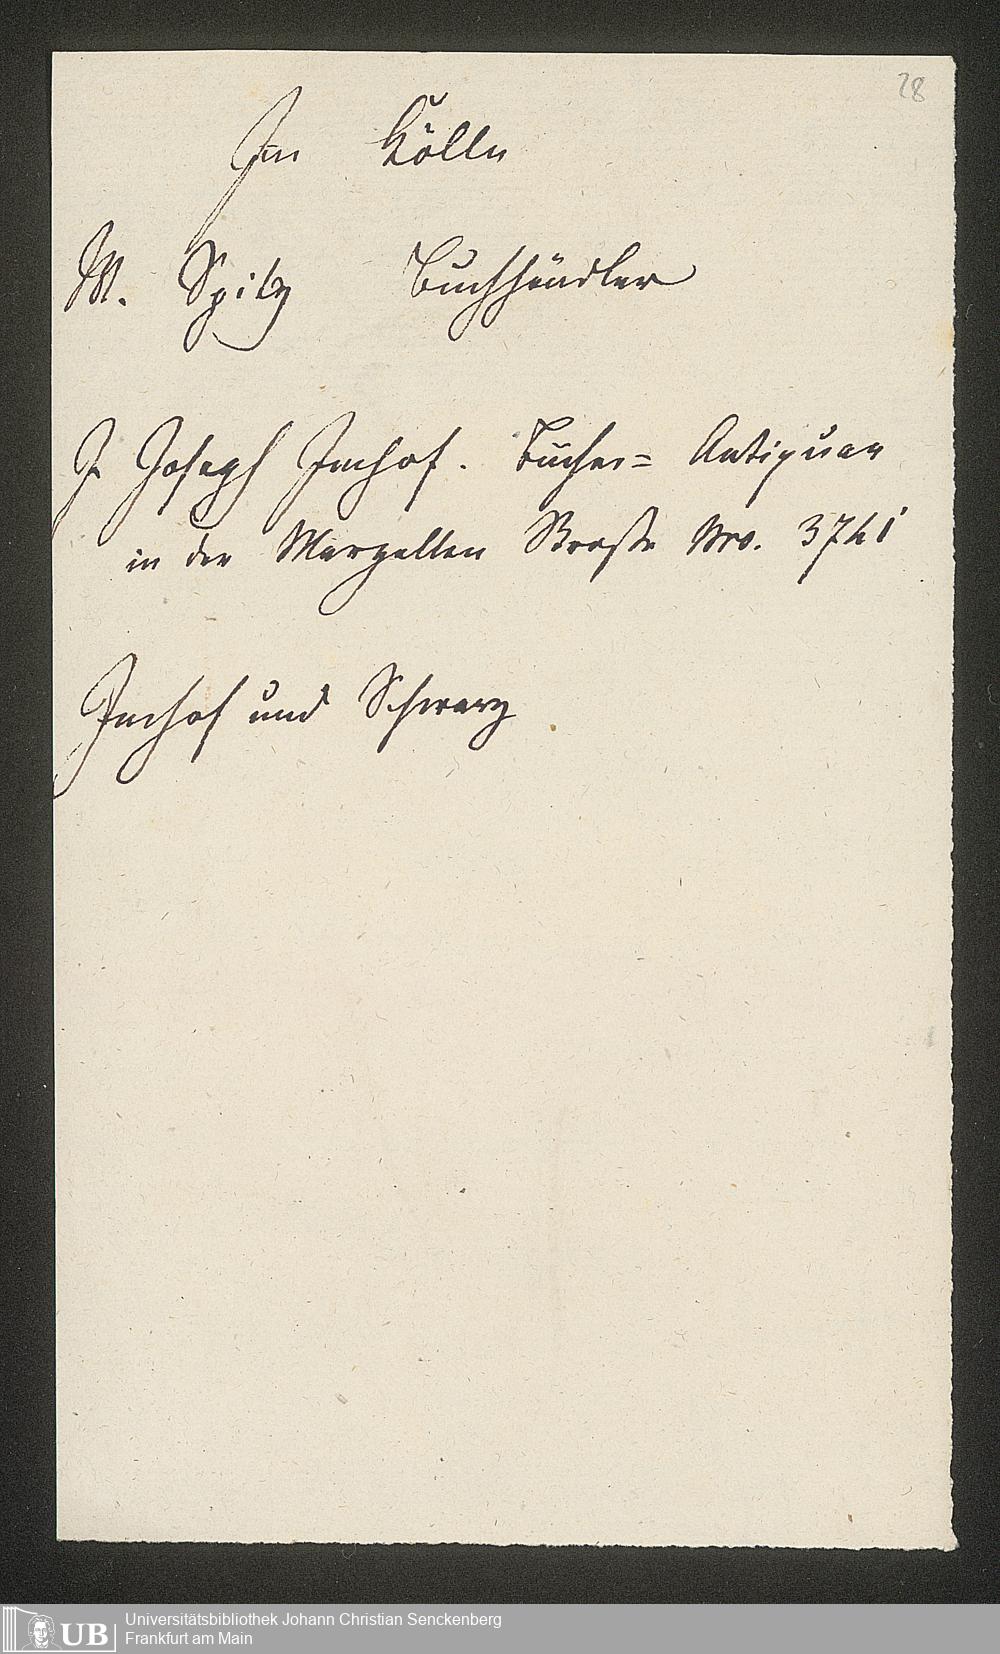 28
In Kölln
M. Spitz Buchhändler
J Joseph Imhof. Bücher= Antiquar
in der Marzellen Straße Nro. 3741
Imhof und Schwarz
UB
Universitätsbibliothek Johann Christian Senckenberg
Frankfurt am Main